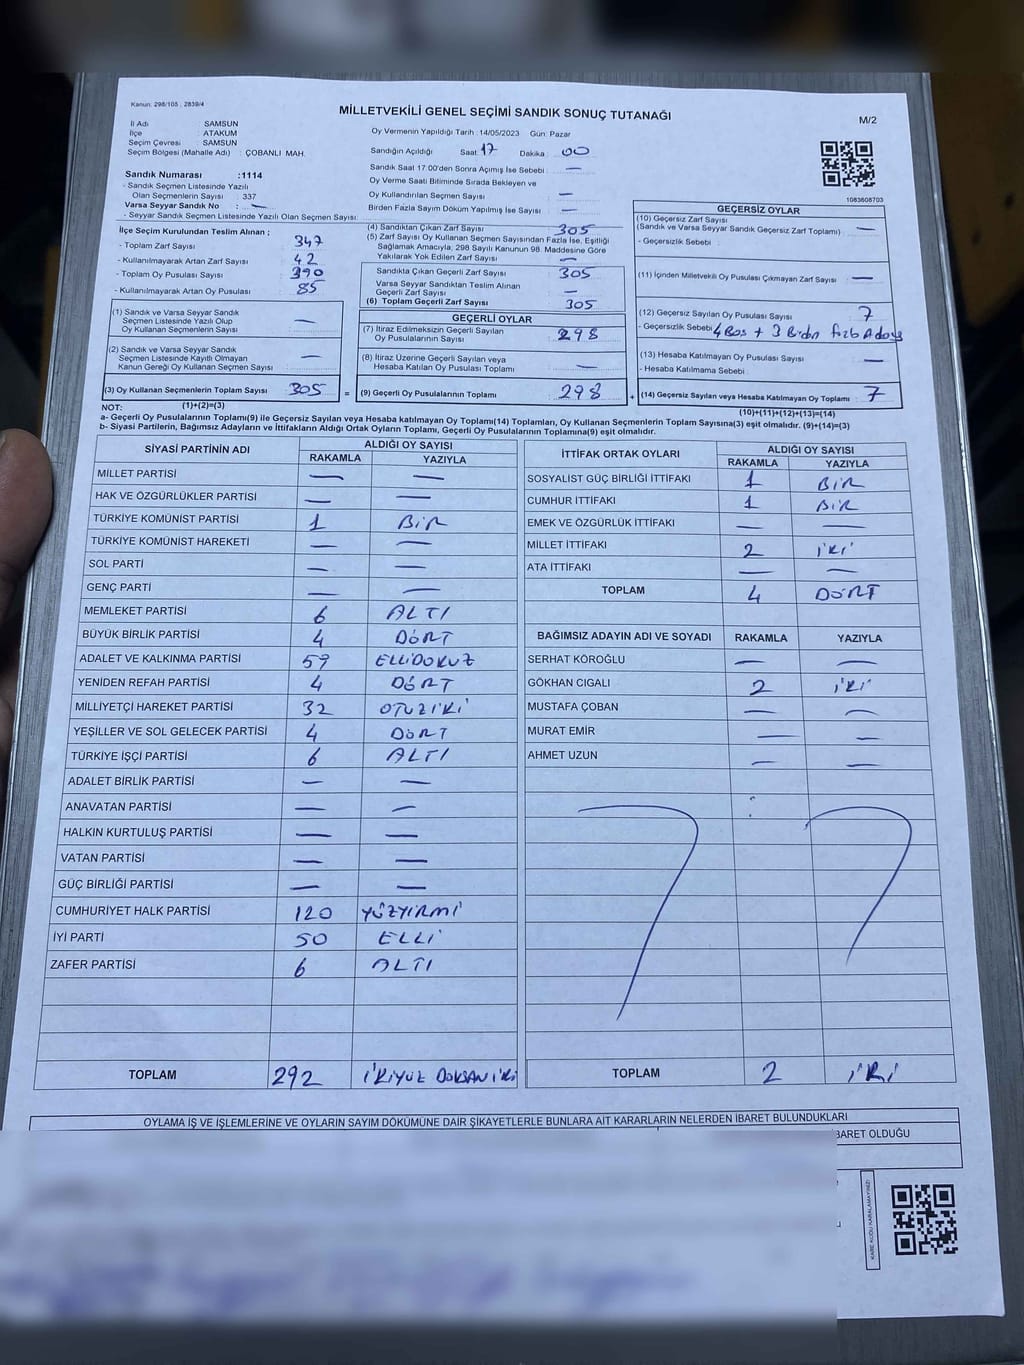 Kanun: 298/105 , 2839/4
MİLLETVEKİLİ GENEL SEÇİMİ SANDIK SONUÇ TUTANAĞI
M/2
İl Adı : SAMSUN
İlçe : ATAKUM
Seçim Çevresi : SAMSUN
Seçim Bölgesi (Mahalle Adı) : ÇOBANLI MAH.
Oy Vermenin Yapıldığı Tarih : 14/05/2023 Gün: Pazar
Sandığın Açıldığı Saat: 17 Dakika : 00
Sandık Saat 17:00'den Sonra Açımış İse Sebebi : —
Oy Verme Saati Bitiminde Sırada Bekleyen ve
Oy Kullandırılan Seçmen Sayısı : —
Birden Fazla Sayım Döküm Yapılmış İse Sayısı : —
Sandık Numarası :1114
- Sandık Seçmen Listesinde Yazılı
Olan Seçmenlerin Sayısı : 337
Varsa Seyyar Sandık No : —
- Seyyar Sandık Seçmen Listesinde Yazılı Olan Seçmen Sayısı:
1083608703
İlçe Seçim Kurulundan Teslim Alınan ;
- Toplam Zarf Sayısı : 347
- Kullanılmayarak Artan Zarf Sayısı : 42
- Toplam Oy Pusulası Sayısı : 390
- Kullanılmayarak Artan Oy Pusulası : 85
(1) Sandık ve Varsa Seyyar Sandık
Seçmen Listesinde Yazılı Olup
Oy Kullanan Seçmenlerin Sayısı : —
(2) Sandık ve Varsa Seyyar Sandık
Seçmen Listesinde Kayıtlı Olmayan
Kanun Gereği Oy Kullanan Seçmen Sayısı : —
(3) Oy Kullanan Seçmenlerin Toplam Sayısı 305
(1)+(2)=(3)
(4) Sandıktan Çıkan Zarf Sayısı : 305
(5) Zarf Sayısı Oy Kullanan Seçmen Sayısından Fazla İse, Eşitliği
Sağlamak Amacıyla, 298 Sayılı Kanunun 98. Maddesine Göre
Yakılarak Yok Edilen Zarf Sayısı : —
Sandıkta Çıkan Geçerli Zarf Sayısı : 305
Varsa Seyyar Sandıktan Teslim Alınan
Geçerli Zarf Sayısı : —
(6) Toplam Geçerli Zarf Sayısı : 305
GEÇERLİ OYLAR
(7) İtiraz Edilmeksizin Geçerli Sayılan
Oy Pusulalarının Sayısı : 298
(8) İtiraz Üzerine Geçerli Sayılan veya
Hesaba Katılan Oy Pusulası Toplamı : —
= (9) Geçerli Oy Pusulalarının Toplamı : 298
GEÇERSİZ OYLAR
(10) Geçersiz Zarf Sayısı
(Sandık ve Varsa Seyyar Sandık Geçersiz Zarf Toplamı) : —
- Geçersizlik Sebebi :
(11) İçinden Milletvekili Oy Pusulası Çıkmayan Zarf Sayısı : —
(12) Geçersiz Sayılan Oy Pusulası Sayısı : 7
- Geçersizlik Sebebi : 4 Boş + 3 Birden fazla Aday
(13) Hesaba Katılmayan Oy Pusulası Sayısı : —
- Hesaba Katılmama Sebebi :
+ (14) Geçersiz Sayılan veya Hesaba Katılmayan Oy Toplamı : 7
(10)+(11)+(12)+(13)=(14)
NOT:
a- Geçerli Oy Pusulalarının Toplamı(9) ile Geçersiz Sayılan veya Hesaba katılmayan Oy Toplamı(14) Toplamları, Oy Kullanan Seçmenlerin Toplam Sayısına(3) eşit olmalıdır. (9)+(14)=(3)
b- Siyasi Partilerin, Bağımsız Adayların ve İttifakların Aldığı Ortak Oyların Toplamı, Geçerli Oy Pusulalarının Toplamına(9) eşit olmalıdır.
SİYASİ PARTİNİN ADI ALDIĞI OY SAYISI
RAKAMLA YAZIYLA
MİLLET PARTİSİ — —
HAK VE ÖZGÜRLÜKLER PARTİSİ — —
TÜRKİYE KOMÜNİST PARTİSİ 1 BİR
TÜRKİYE KOMÜNİST HAREKETİ — —
SOL PARTİ — —
GENÇ PARTİ — —
MEMLEKET PARTİSİ 6 ALTI
BÜYÜK BİRLİK PARTİSİ 4 DÖRT
ADALET VE KALKINMA PARTİSİ 59 ELLİDOKUZ
YENİDEN REFAH PARTİSİ 4 DÖRT
MİLLİYETÇİ HAREKET PARTİSİ 32 OTUZİKİ
YEŞİLLER VE SOL GELECEK PARTİSİ 4 DÖRT
TÜRKİYE İŞÇİ PARTİSİ 6 ALTI
ADALET BİRLİK PARTİSİ — —
ANAVATAN PARTİSİ — —
HALKIN KURTULUŞ PARTİSİ — —
VATAN PARTİSİ — —
GÜÇ BİRLİĞİ PARTİSİ — —
CUMHURİYET HALK PARTİSİ 120 YÜZYİRMİ
İYİ PARTİ 50 ELLİ
ZAFER PARTİSİ 6 ALTI
TOPLAM 292 İKİYÜZ DOKSANİKİ
İTTİFAK ORTAK OYLARI ALDIĞI OY SAYISI
RAKAMLA YAZIYLA
SOSYALİST GÜÇ BİRLİĞİ İTTİFAKI 1 BİR
CUMHUR İTTİFAKI 1 BİR
EMEK VE ÖZGÜRLÜK İTTİFAKI — —
MİLLET İTTİFAKI 2 İKİ
ATA İTTİFAKI — —
TOPLAM 4 DÖRT
BAĞIMSIZ ADAYIN ADI VE SOYADI RAKAMLA YAZIYLA
SERHAT KÖROĞLU — —
GÖKHAN CIGALI 2 İKİ
MUSTAFA ÇOBAN — —
MURAT EMİR — —
AHMET UZUN — —
TOPLAM 2 İKİ
OYLAMA İŞ VE İŞLEMLERİNE VE OYLARIN SAYIM DÖKÜMÜNE DAİR ŞİKAYETLERLE BUNLARA AİT KARARLARIN NELERDEN İBARET BULUNDUKLARI
İBARET OLDUĞU
KARE KODU KARALAMAYINIZ!